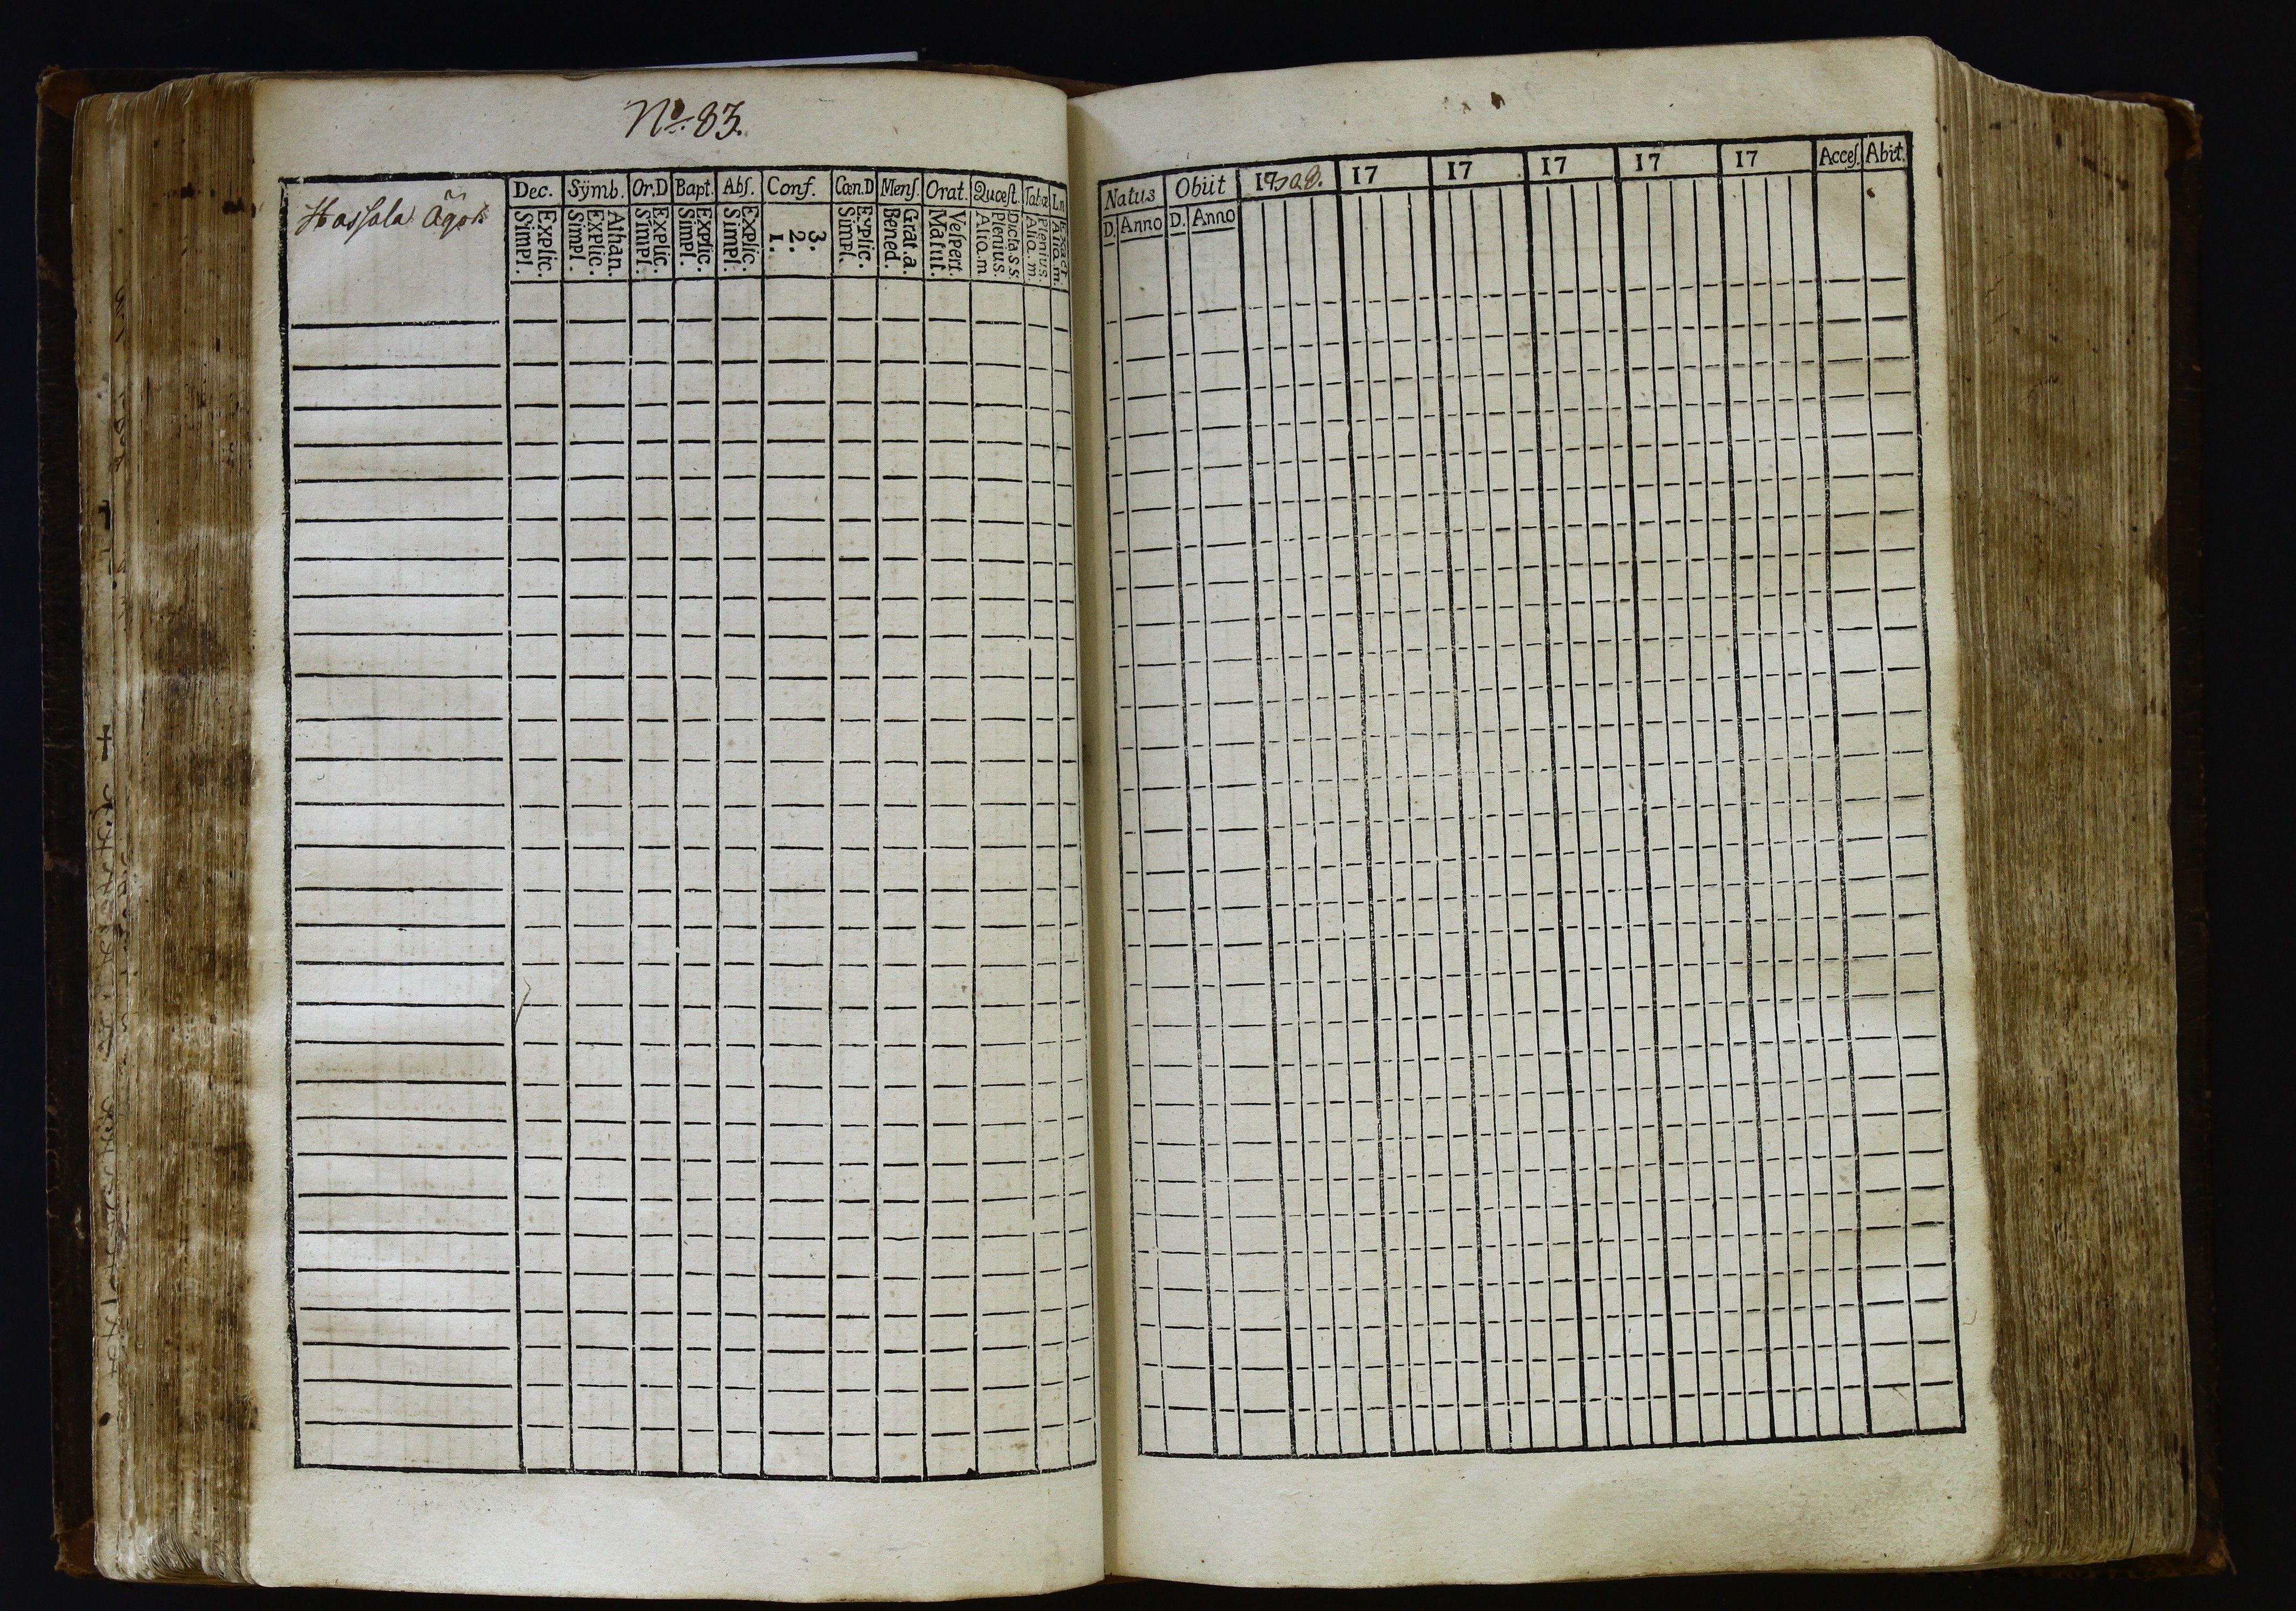 No. 83.
Hassala
Dec. Sÿmb. Or.D Bapt. Abs. Conf. Cœn.D Mens. Orat. Quœst. Tabœ
Explic. Simpl.
Athan. Explic. Simpl.
Explic. Simpl.
Explic. Simpl.
Explic. Simpl.
3. 2. 1.
Explic. Simpl.
Grat.a. Bened.
Vespert. Matut.
Dicta.s s. Plenius. Alio.m.
Plenius. Alio.m.
Exact Alio.m.
Natus Obiit 17 17 17 17 17 17 Acces. Abit.
D. Anno D. Anno